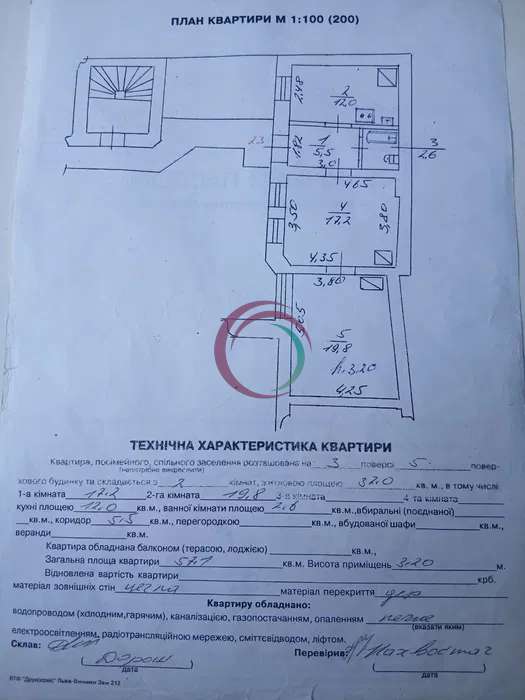 ПЛАН КВАРТИРИ М 1:100 (200)
2
12,0
2.48
1
5,5
1.82
3,0
23
3
2,6
4,65
3,50
4
17,2
3,80
4,35
3,80
5,05
5
19,8
h.3,20
4,25
ТЕХНІЧНА ХАРАКТЕРИСТИКА КВАРТИРИ
Квартира, посімейного, спільного заселення розташована на 3 поверсі 5 повер-
(непотрібне викреслити)
хового будинку та складається з 2 кімнат, житловою площею 37,0 кв. м., в тому числі
1-а кімната 17.2 2-га кімната 19,8 3-я кімната 4-та кімната
кухні площею 12,0 кв. м., ванної кімнати площею 2.6 кв.м.,вбиральні (поєднаної)
кв.м., коридор 5.5 кв.м., перегородкою кв. м., вбудованої шафи кв. м.,
веранди кв.м.
Квартира обладнана балконом (терасою, лоджією) кв.м.,
Загальна площа квартири 57,1 кв.м. Висота приміщень 3.20 м.
Відновлена вартість квартири крб.
матеріал зовнішніх стін цегла матеріал перекриття дер
Квартиру обладнано:
водопроводом (холодним,гарячим), каналізацією, газопостачанням, опаленням
(вказати яким)
електроосвітленням, радіотрансляційною мережею, сміттєвідводом, ліфтом.
Склав: Перевірив:
дата дата
ВТФ "Друксервіс" Львів-Винники Зам 212